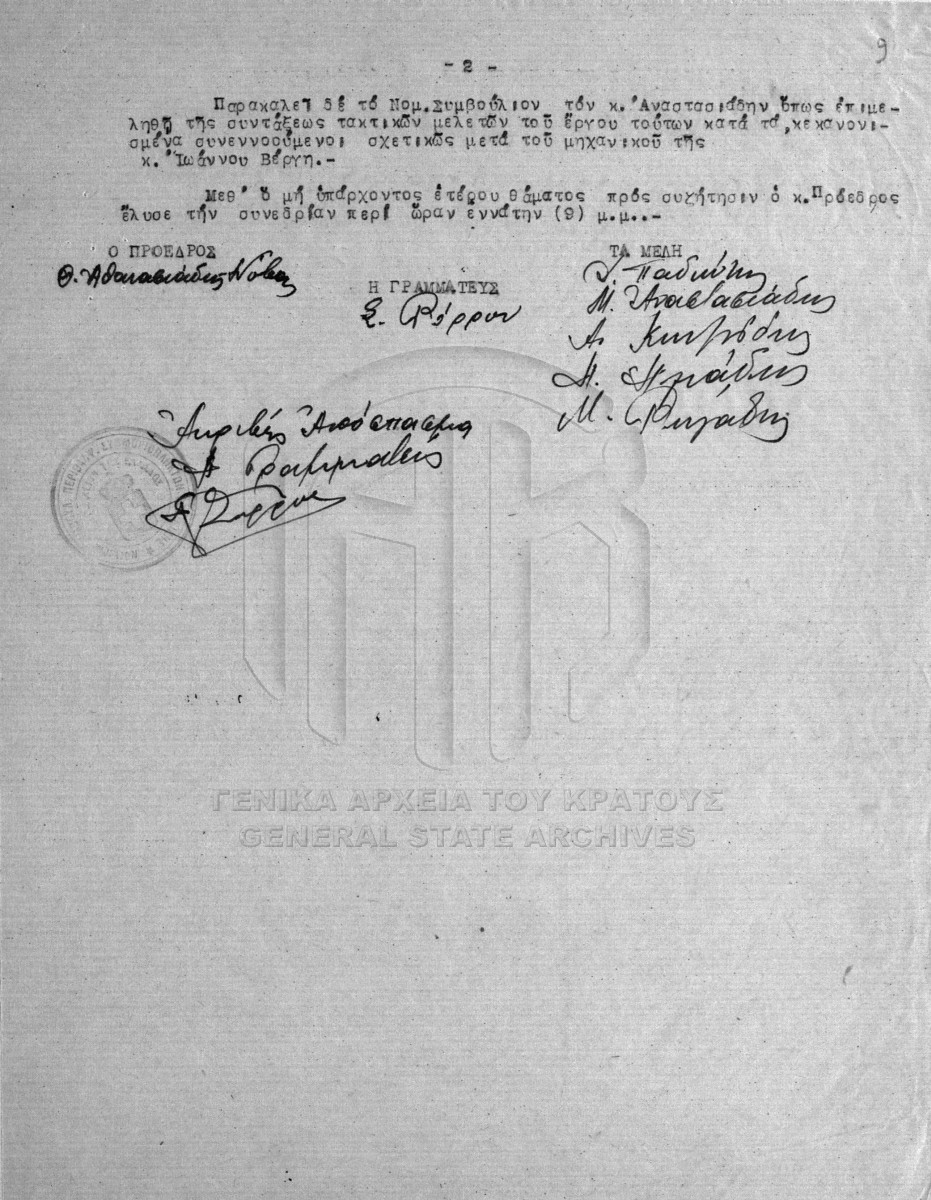 9
- 2 -
Παρακαλεῖ δέ τό Νομ.Συμβούλιον τόν κ.Ἀναστασιάδην ὅπως ἐπιμε-
ληθῇ τῆς συντάξεως τακτικῶν μελετῶν τοῦ ἔργου τούτων κατά τά κεκανονι-
σμένα συνεννοούμενοι σχετικῶς μετά τοῦ μηχανικοῦ τῆς
κ. Ἰωάννου Βέργη.-
Μεθ' ὅ μή ὑπάρχοντος ἑτέρου θάματος πρός συζήτησιν ὁ κ.Πρόεδρος
ἔλυσε τήν συνεδρίαν περί ὥραν ἐννάτην (9) μ.μ..-
Ο ΠΡΟΕΔΡΟΣ
Θ. Ἀθανασιάδης Νόβας
Η ΓΡΑΜΜΑΤΕΥΣ
Σ.
ΤΑ ΜΕΛΗ
Μ. Ἀναστασιάδης
Α.
Η.
Μ.
Ἀκριβές Ἀπόσπασμα
Η Γραμματεύς
ΓΕΝΙΚΑ ΑΡΧΕΙΑ ΤΟΥ ΚΡΑΤΟΥΣ
GENERAL STATE ARCHIVES